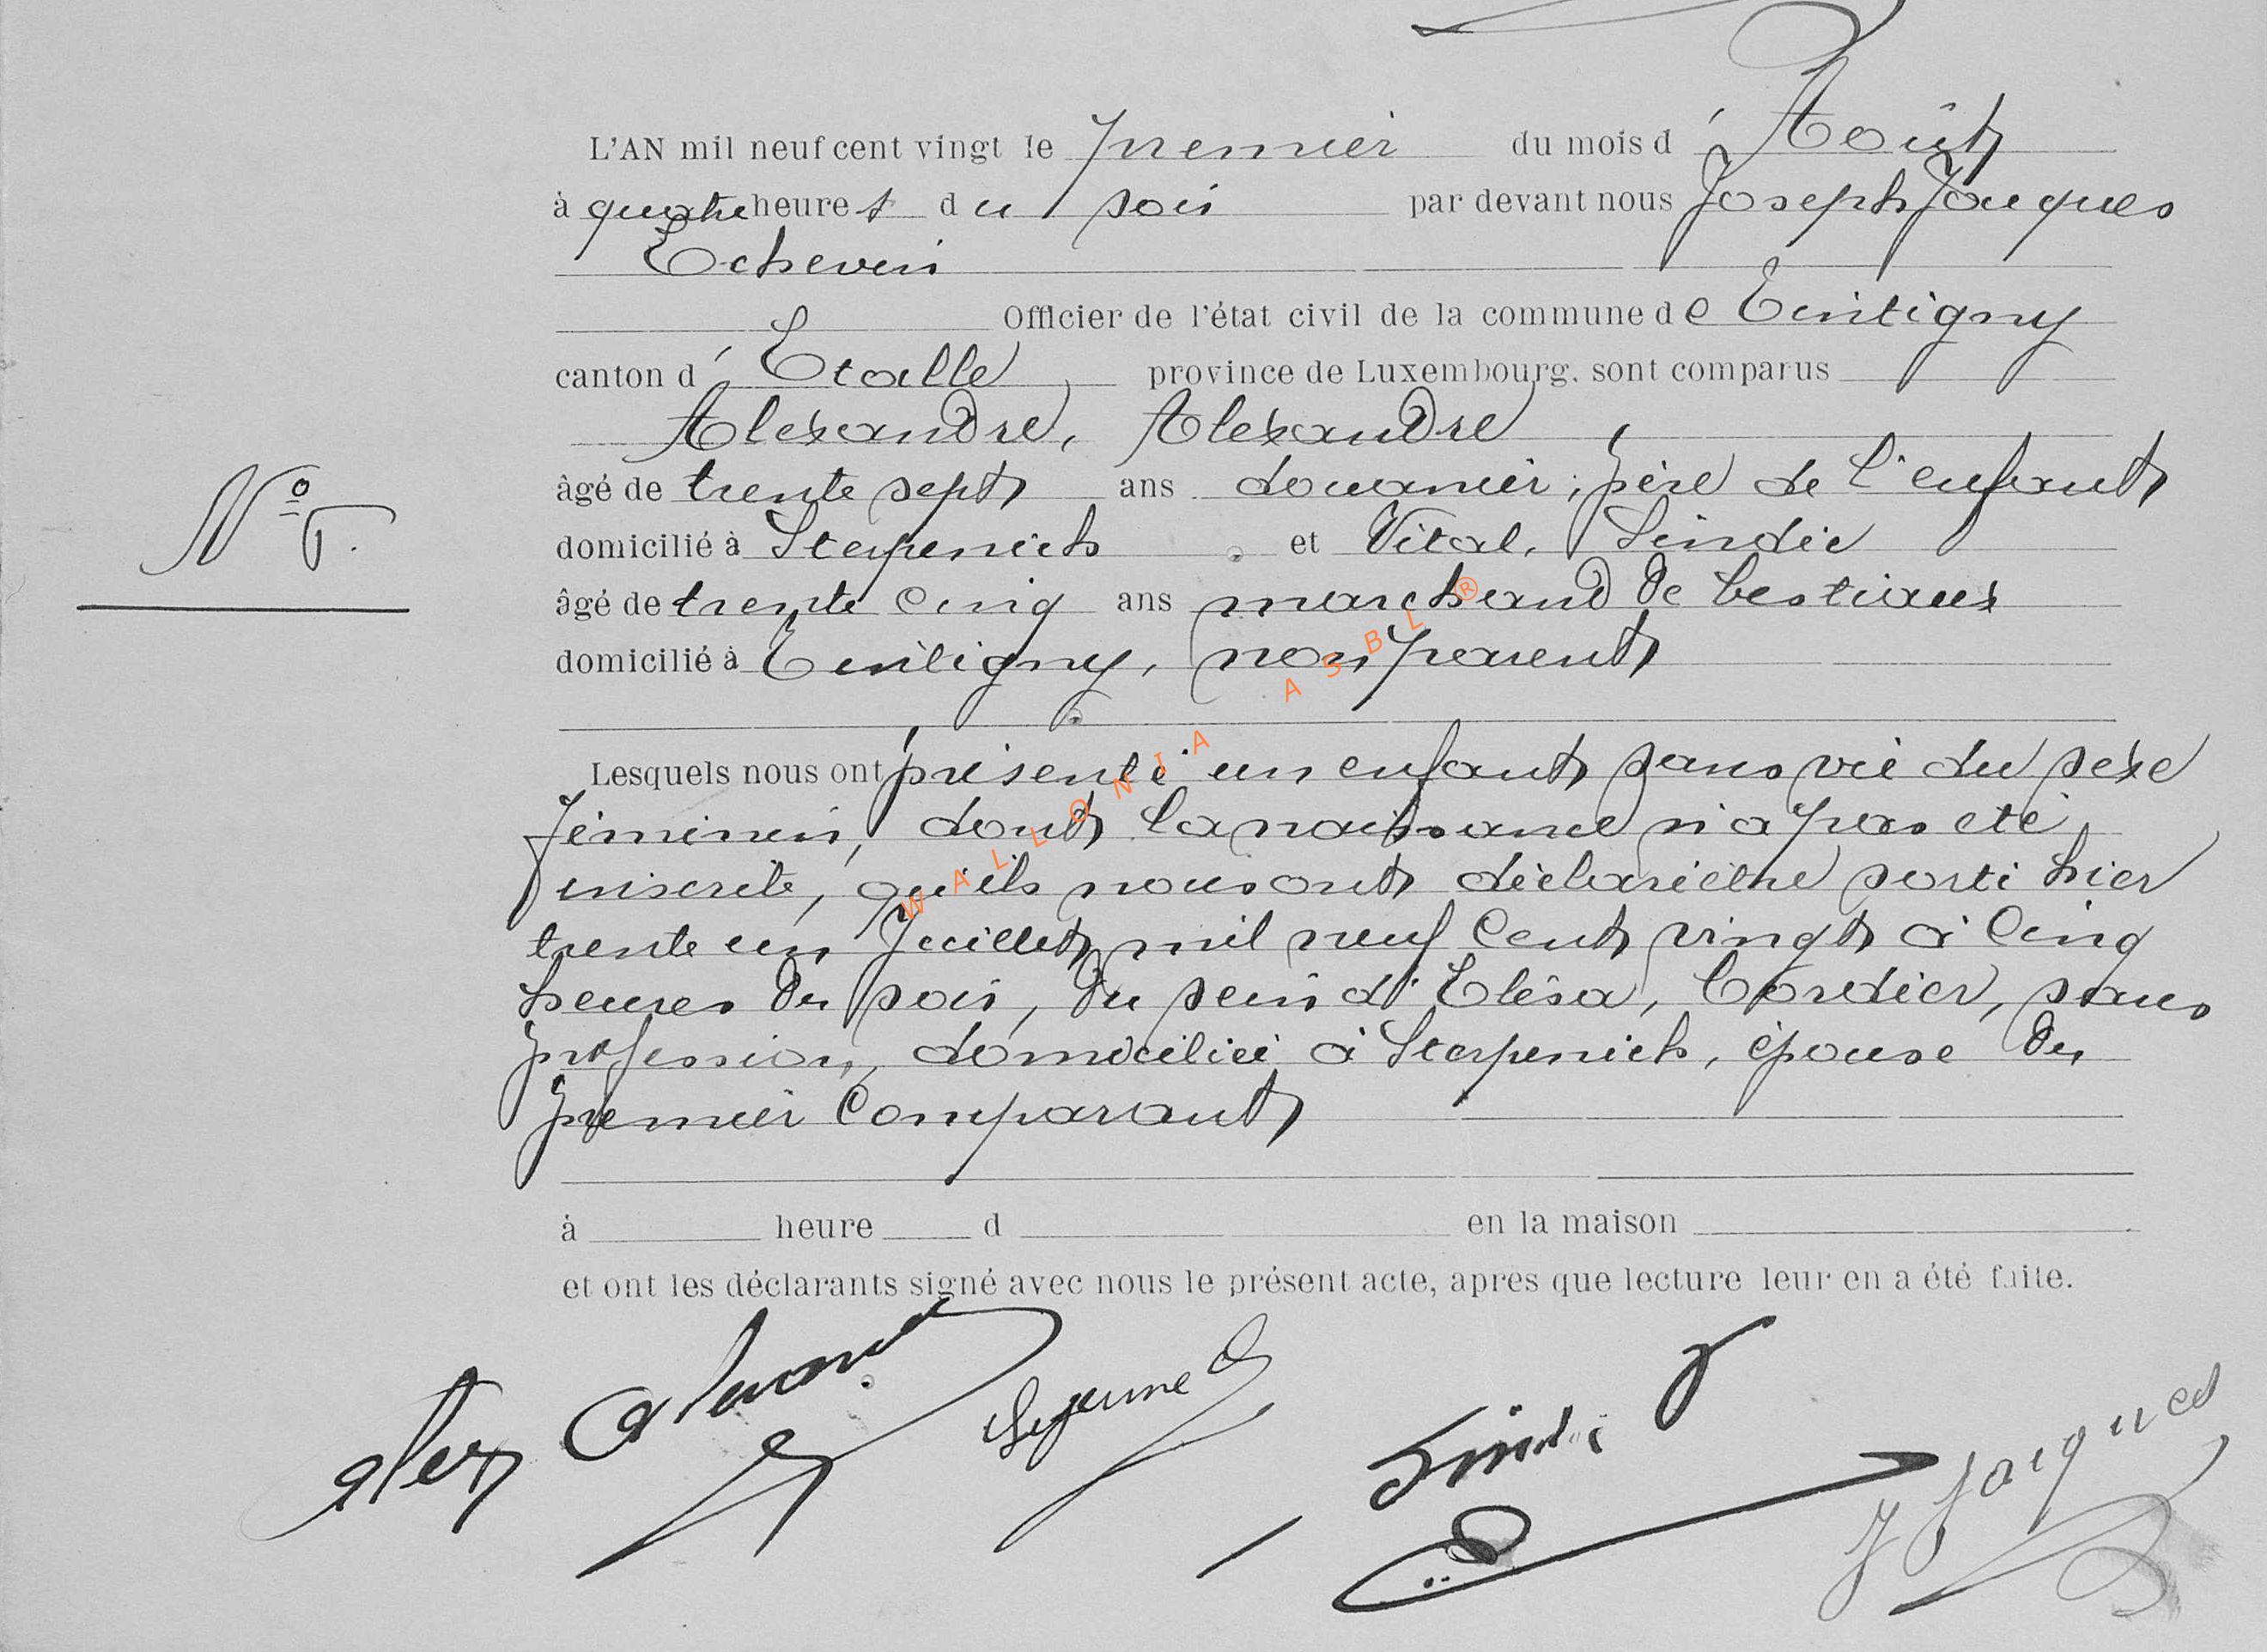 L'AN mil neuf cent vingt le premier du mois d'Août
à quatre heures du soir par devant nous Joseph Jacques
Echevin
Officier de l'état civil de la commune de Tintigny
canton d'Etalle province de Luxembourg, sont comparus
Alexandre, Alexandre
âgé de trente sept ans douanier, père de l'enfant
domicilié à Sterpenich et Vital, Sindic
N°5.
âgé de trente cinq ans marchand de bestiaux
domicilié à Tintigny, non parent
Lesquels nous ont présenté un enfant sans vie du sexe
féminin, dont la naissance n'a pas eté
inscrite, qu'ils nous ont déclaré être sorti hier
trente un Juillet mil neuf cent vingt à cinq
heures du soir, du sein d'Elisa, Cordier, sans
profession, domiciliée à Sterpenich, épouse du
premier comparant
à heure d en la maison
et ont les déclarants signé avec nous le présent acte, après que lecture leur en a été faite.
Alex Lejeune Sindic J Jacques
WALLONIA ASBL ®